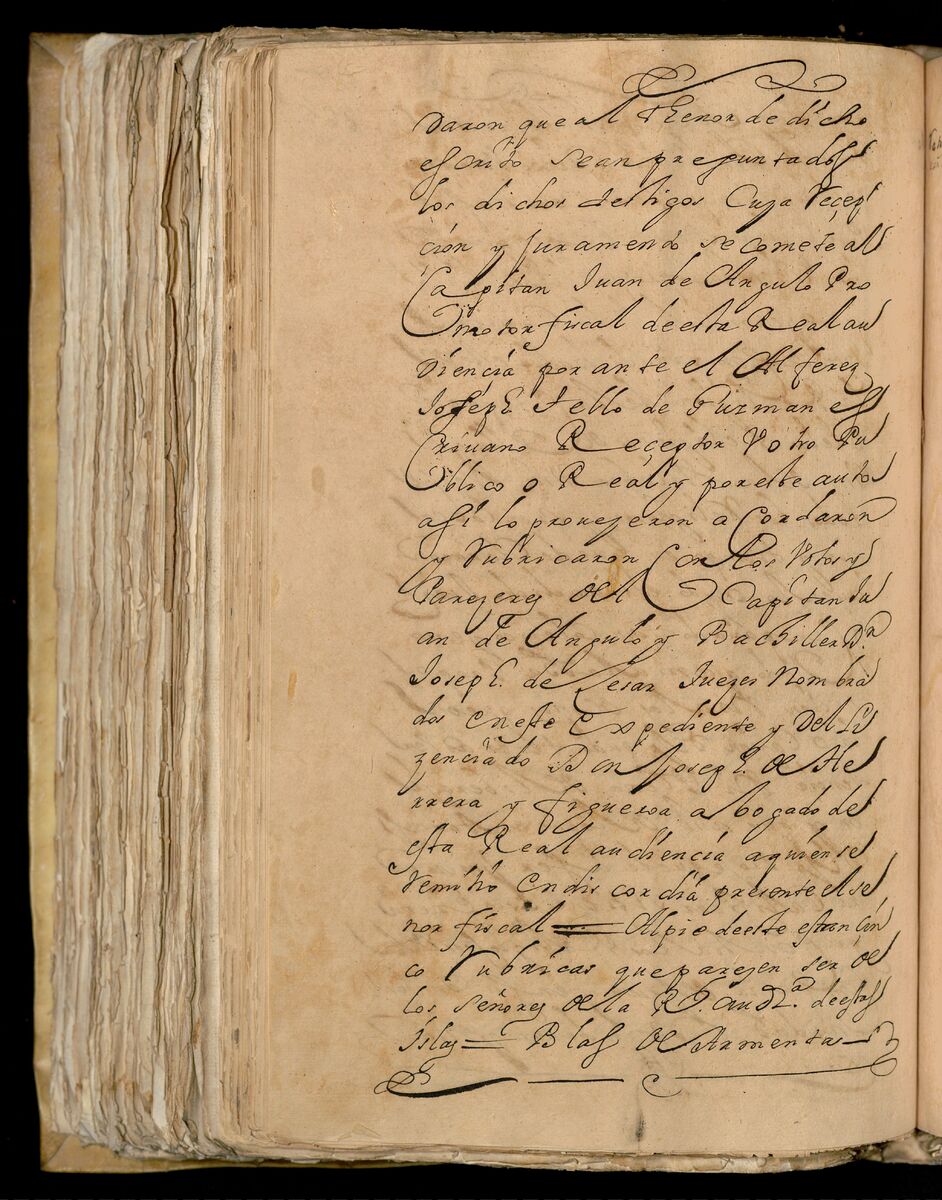 daron que al thenor de dicho
escrito sean preguntados
los dichos testigos Cuya recep
ción y juramento se comete al
Capitan Juan de Angulo Pro
motor fiscal de esta Real au
diencia por ante el Alferez
Joseph tello de Guzman es
crivano Receptor V otro Pu
blico o Real y por este auto
assi lo proveyeron acordaron
y rubricaron Con los Votos y
Parezeres del Capitan Ju
an de Angulo y Bachiller Dn
Joseph. de Cesar Juezes Nombra
dos en este Expediente y Del Li
zenciado Don Joseph. de He
rrera y figueroa abogado de
esta Real audiencia a quien se
remitió en discordia presente el se
ñor fiscal = Al pie de este estan Cin
co rubricas que parezen ser de
los señores de la Rl. audza. de estas
Islas = Blas de Armenta